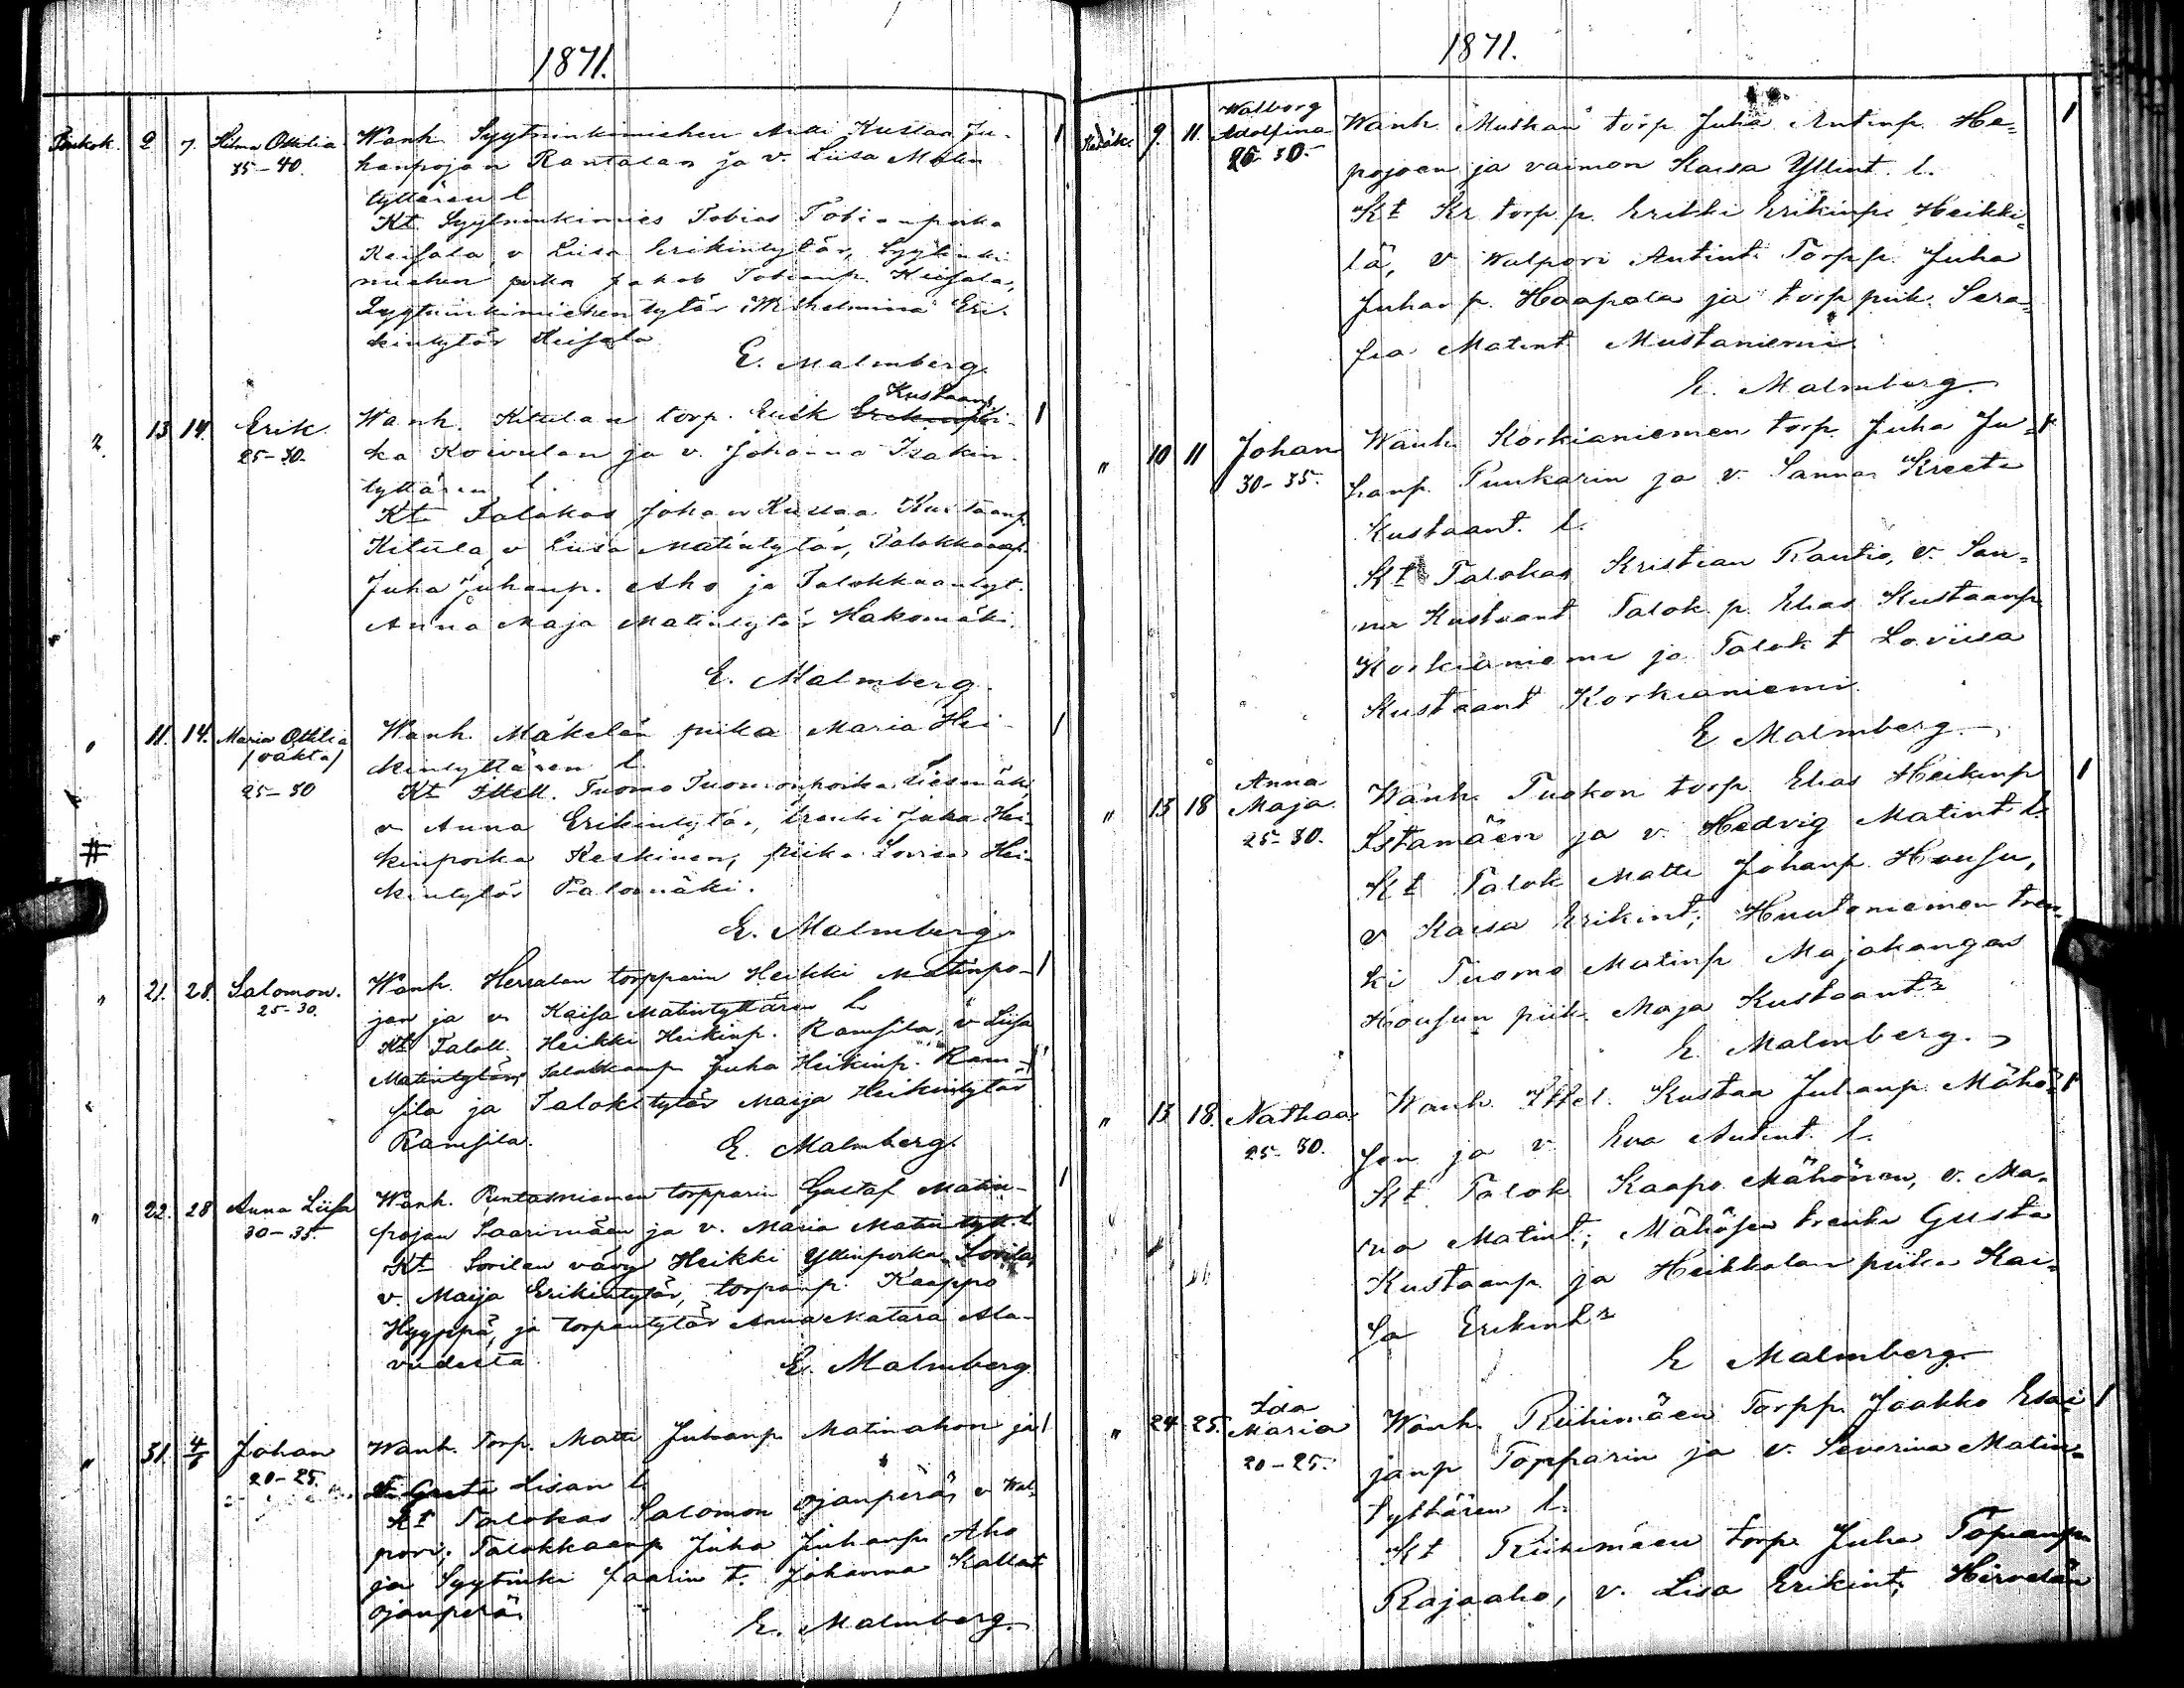 1871.
Toukok. 2 7. Hilma Ottilia Wanh. Syytninkimiehen Antti Kustaa Ju-
35-40. hanpojan Rantalan ja v. Liisa Matin
tyttären l.
Kt. Syytninkimies Tobias Tobianpoika
Keisala, v. Liisa Erikintytär, Syytinki
miehen poika Jakob Tobianp. Keisala,
Syytninkimiehen tytär Wilhelmina Eri-
kintytär Keisala
E. Malmberg.
Kustaanp
" 13 14. Erik Wanh. Kitulan torp. Erik Erikinpoi-
25-30. ka Koivulan ja v. Johanna Isakin-
tyttären l.
Kt. Talokas Johan Kustaa Kustaanp.
Kitula, v. Liisa Matintytär, Talokkaanp.
Juha Juhanp. Aho ja Talokkaantyt.
Anna Maja Matintytär Hakomäki.
E. Malmberg.
" 11. 14. Maria Ottilia Wanh. Mäkelän piika Maria Hei-
/oäkta/ kintyttären l.
25-30 Kt. Ittell. Tuomo Tuomonpoika Liesmäki,
v. Anna Erikintytär, trenki Juha Hei-
kinpoika Keskinen, piika Lovisa Hei-
kintytär Palomäki.
E. Malmberg.
" 21. 28. Salomon. Wanh. Herralan torpparin Heikki Matinpo-
25-30. jan ja v. Kaisa Matintyttären l.
Kt. Taloll. Heikki Heikinp. Ramsila, v. Liisa
Matintytär, Talokkaanp. Juha Heikinp. Ram-
sila ja Talok.tytär Maija Heikintytär
Ramsila.
E. Malmberg.
" 22. 28 Anna Liisa Wanh. torpparin Gustaf Matin-
30-35. pojan Saarimäen ja v. Maria Matintytt. l.
Kt. Sorilan vävy Heikki Yllinpoika Sorila,
v. Maija Erikintytär, torpanp. Kaappo
Hyyppä, ja torpantytär Anna Matara Ala-
vudesta
E. Malmberg.
" 31. 4/6 Johan Wanh. Torp. Matti Juhanp. Matinahon ja
20-25. v. Greta Lisan l.
Kt. Talokas Salomon Ojanperä, v. Wal-
pori; Talokkaanp. Juha Juhanp. Aho
ja Syytinki t. Johanna Kallent
Ojanperä.
E. Malmberg.
1871.
Walborg
Kesäk. 9. 11. Adolfina Wanh. Muthan torp. Juha Antinp. He-
25-30. pojoen ja vaimon Kaisa Yllint. l.
Kt. Kr. torp. p. Erikki Erikinp. Heikki-
lä, v. Walpori Antint. Torp. p. Juha
Juhan p. Haapala ja torp piik. Sera-
fia Matint. Mustaniemi.
E. Malmberg.
" 10 11 Johan Wanh. Korkianiemen torp. Juha Ju-
30-35. hanp. Punkarin ja v. Sanna Kreeta
Kustaant. l.
Kt. Talokas Kristian Rautio, v. San-
na Kustaant. Talok. p. Elias Kustaanp.
Korkianiemi ja Talok. t. Loviisa
Kustaant. Korkianiemi.
E Malmberg.
Anna
" 13 18 Maja. Wanh. Tuokon torp. Elias Heikinp.
25-30. Istamäen ja v. Hedvig Matint. l.
Kt. Talok. Matti Johanp. Housu,
v. Kaisa Erikint; Huutoniemen tren-
ki Tuomo Matinp. Majakangas
Housun piik. Maja Kustaant.
E. Malmberg.
" 13 18. Nathan Wanh. Ittel. Kustaa Juhanp. Mähö-
25-30. sen ja v. Eva Antint. l.
Kt. Talok. Kaapo Mähönen, v. Ma-
ria Matint.; Mähösen trenki Gusta
Kustaanp. ja Heikkolan piika Kai-
sa Erikint.
E Malmberg.
Ida
" 24 25. Maria Wanh. Riihimäen Torpp. Jaakko Esai-
20-25. janp. Topparin ja v. Severina Matin-
tyttären l.
Kt. Riihimäen torp. Juha Topianp.
Rajaaho, v. Lisa Erikint; Hirvelän